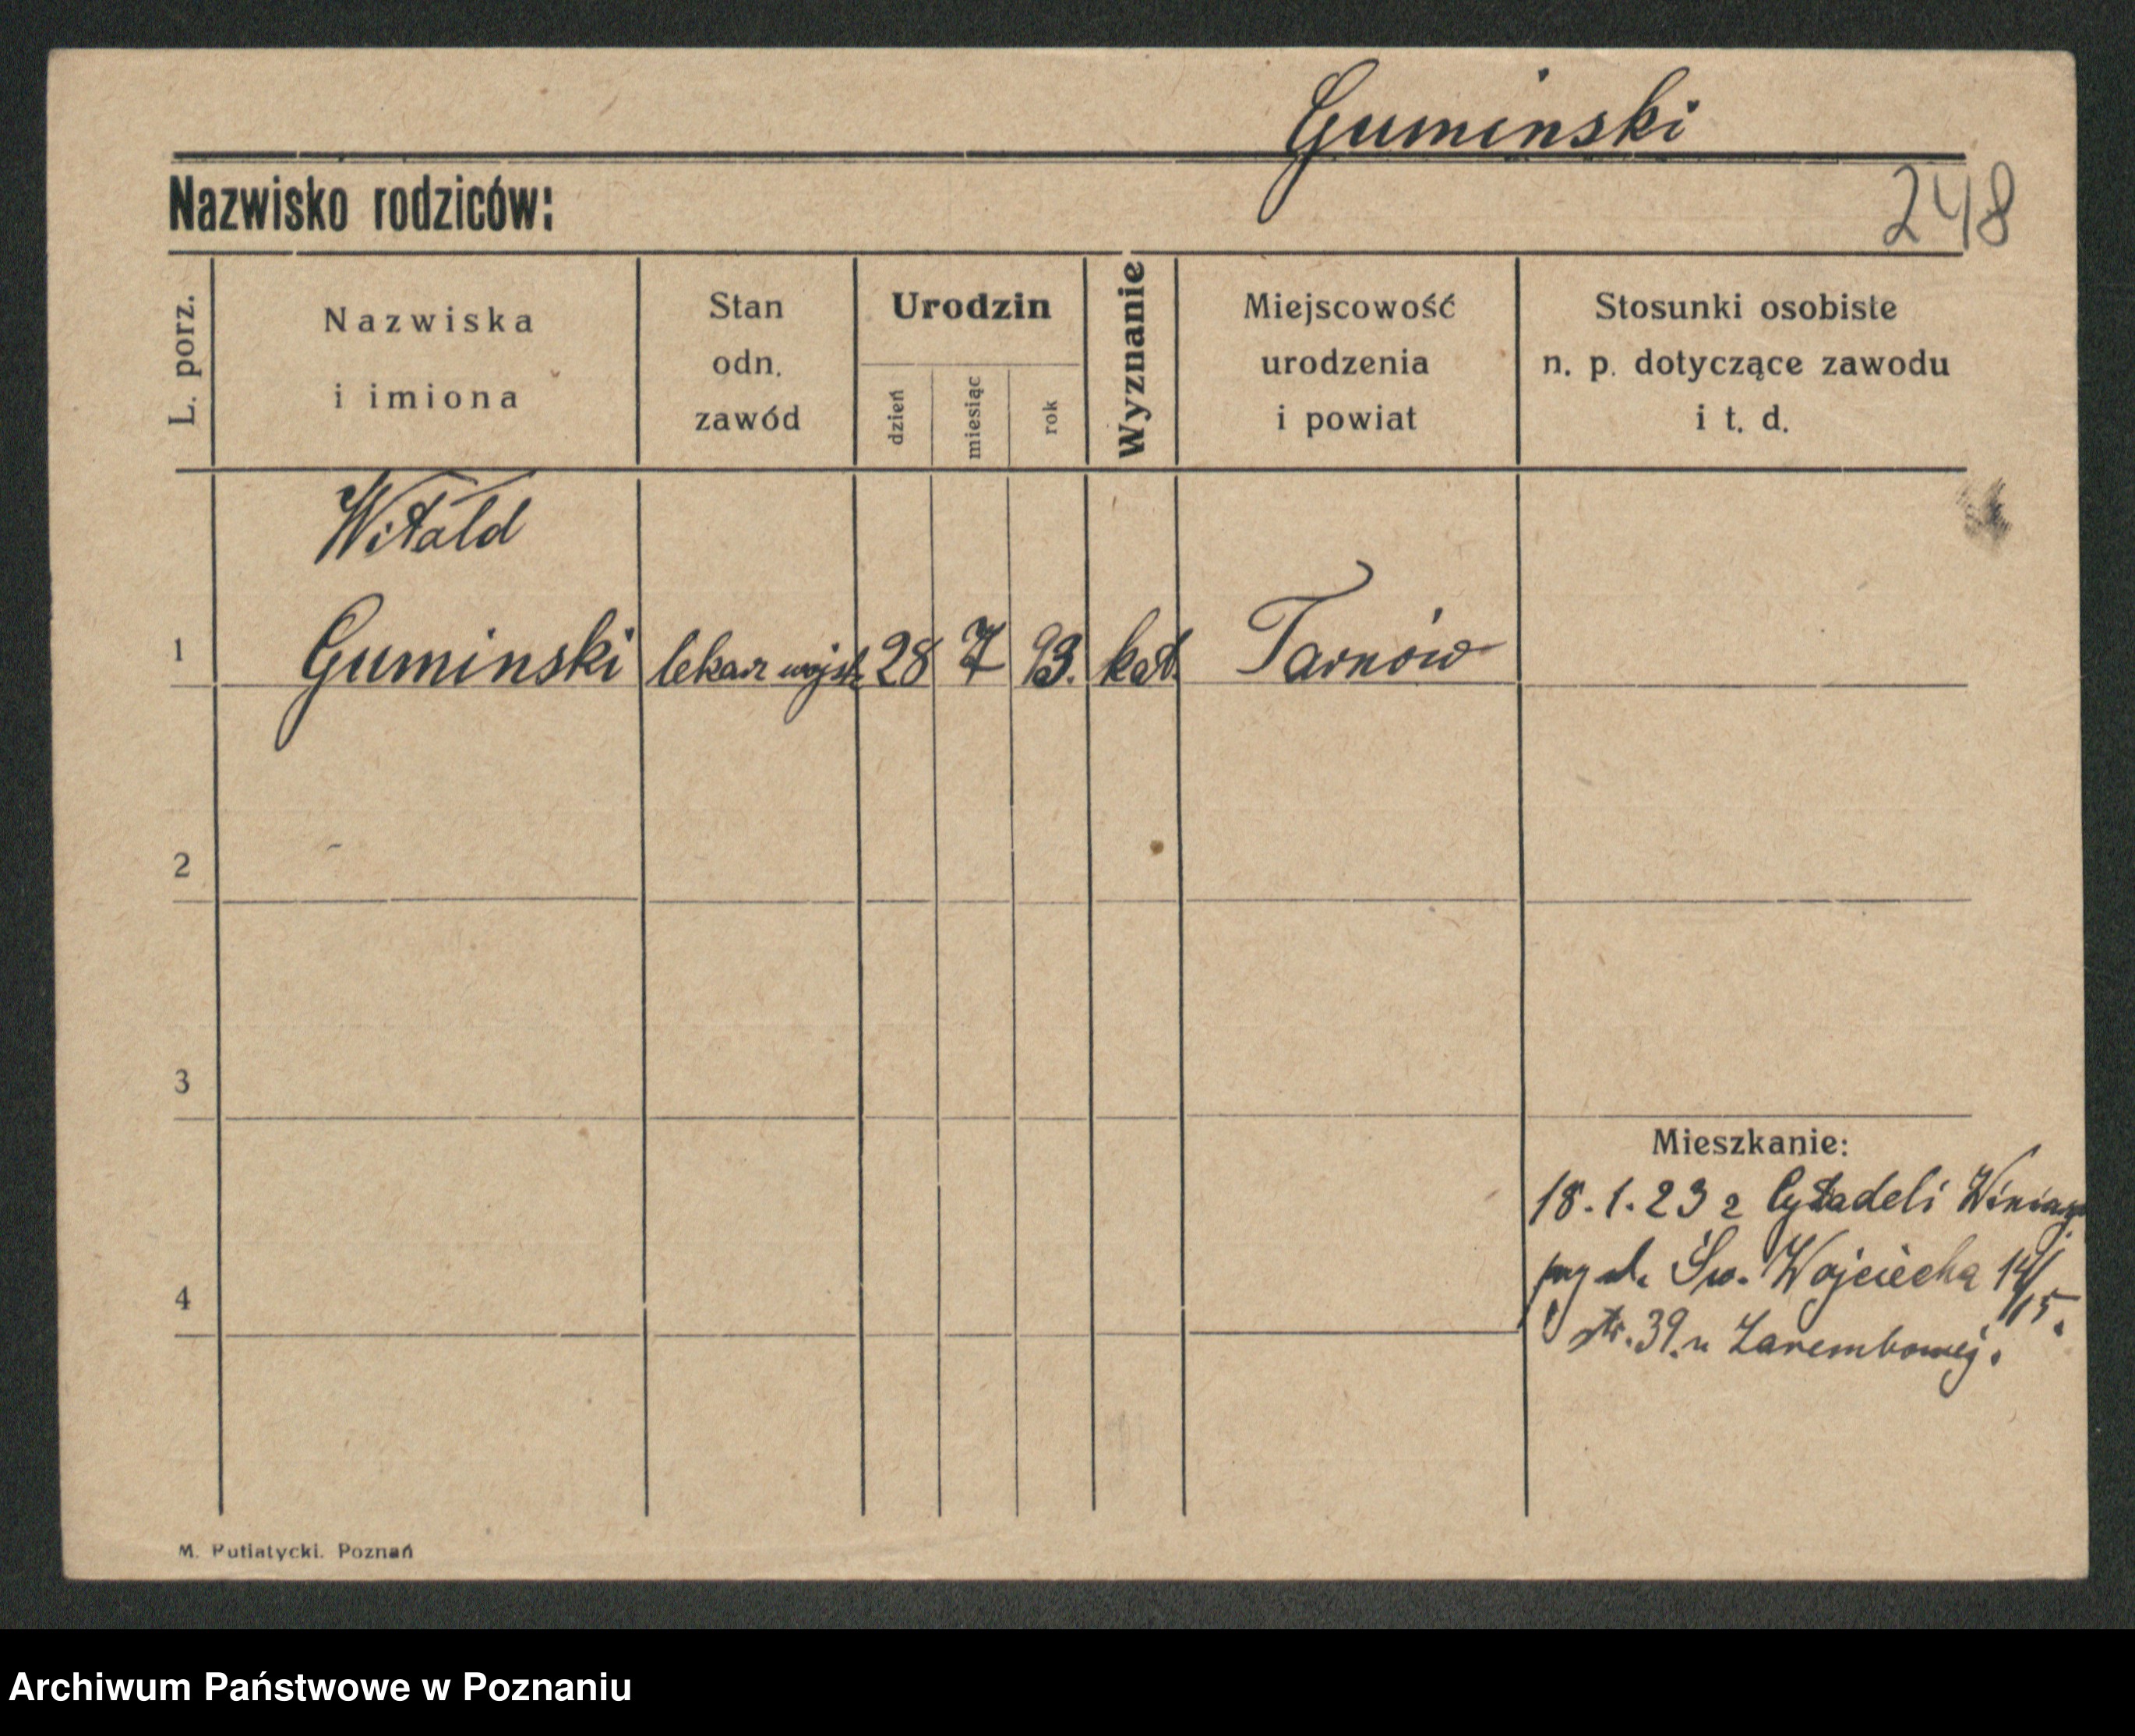 Guminski
Nazwisko rodziców:
248
L. porz.
Nazwiska
i imiona
Stan
odn.
zawód
Urodzin
dzień
miesiąc
rok
Wyznanie
Miejscowość
urodzenia
i powiat
Stosunki osobiste
n. p. dotyczące zawodu
i t. d.
Witold
1 Guminski lekarz wojsk. 28 7 93. kat. Tarnów
2
3
Mieszkanie:
18.1.23 z Cytadeli
Św. Wojciecha 14/15.
4
39. u Zarembowej.
M. Putiatycki. Poznań
Archiwum Państwowe w Poznaniu